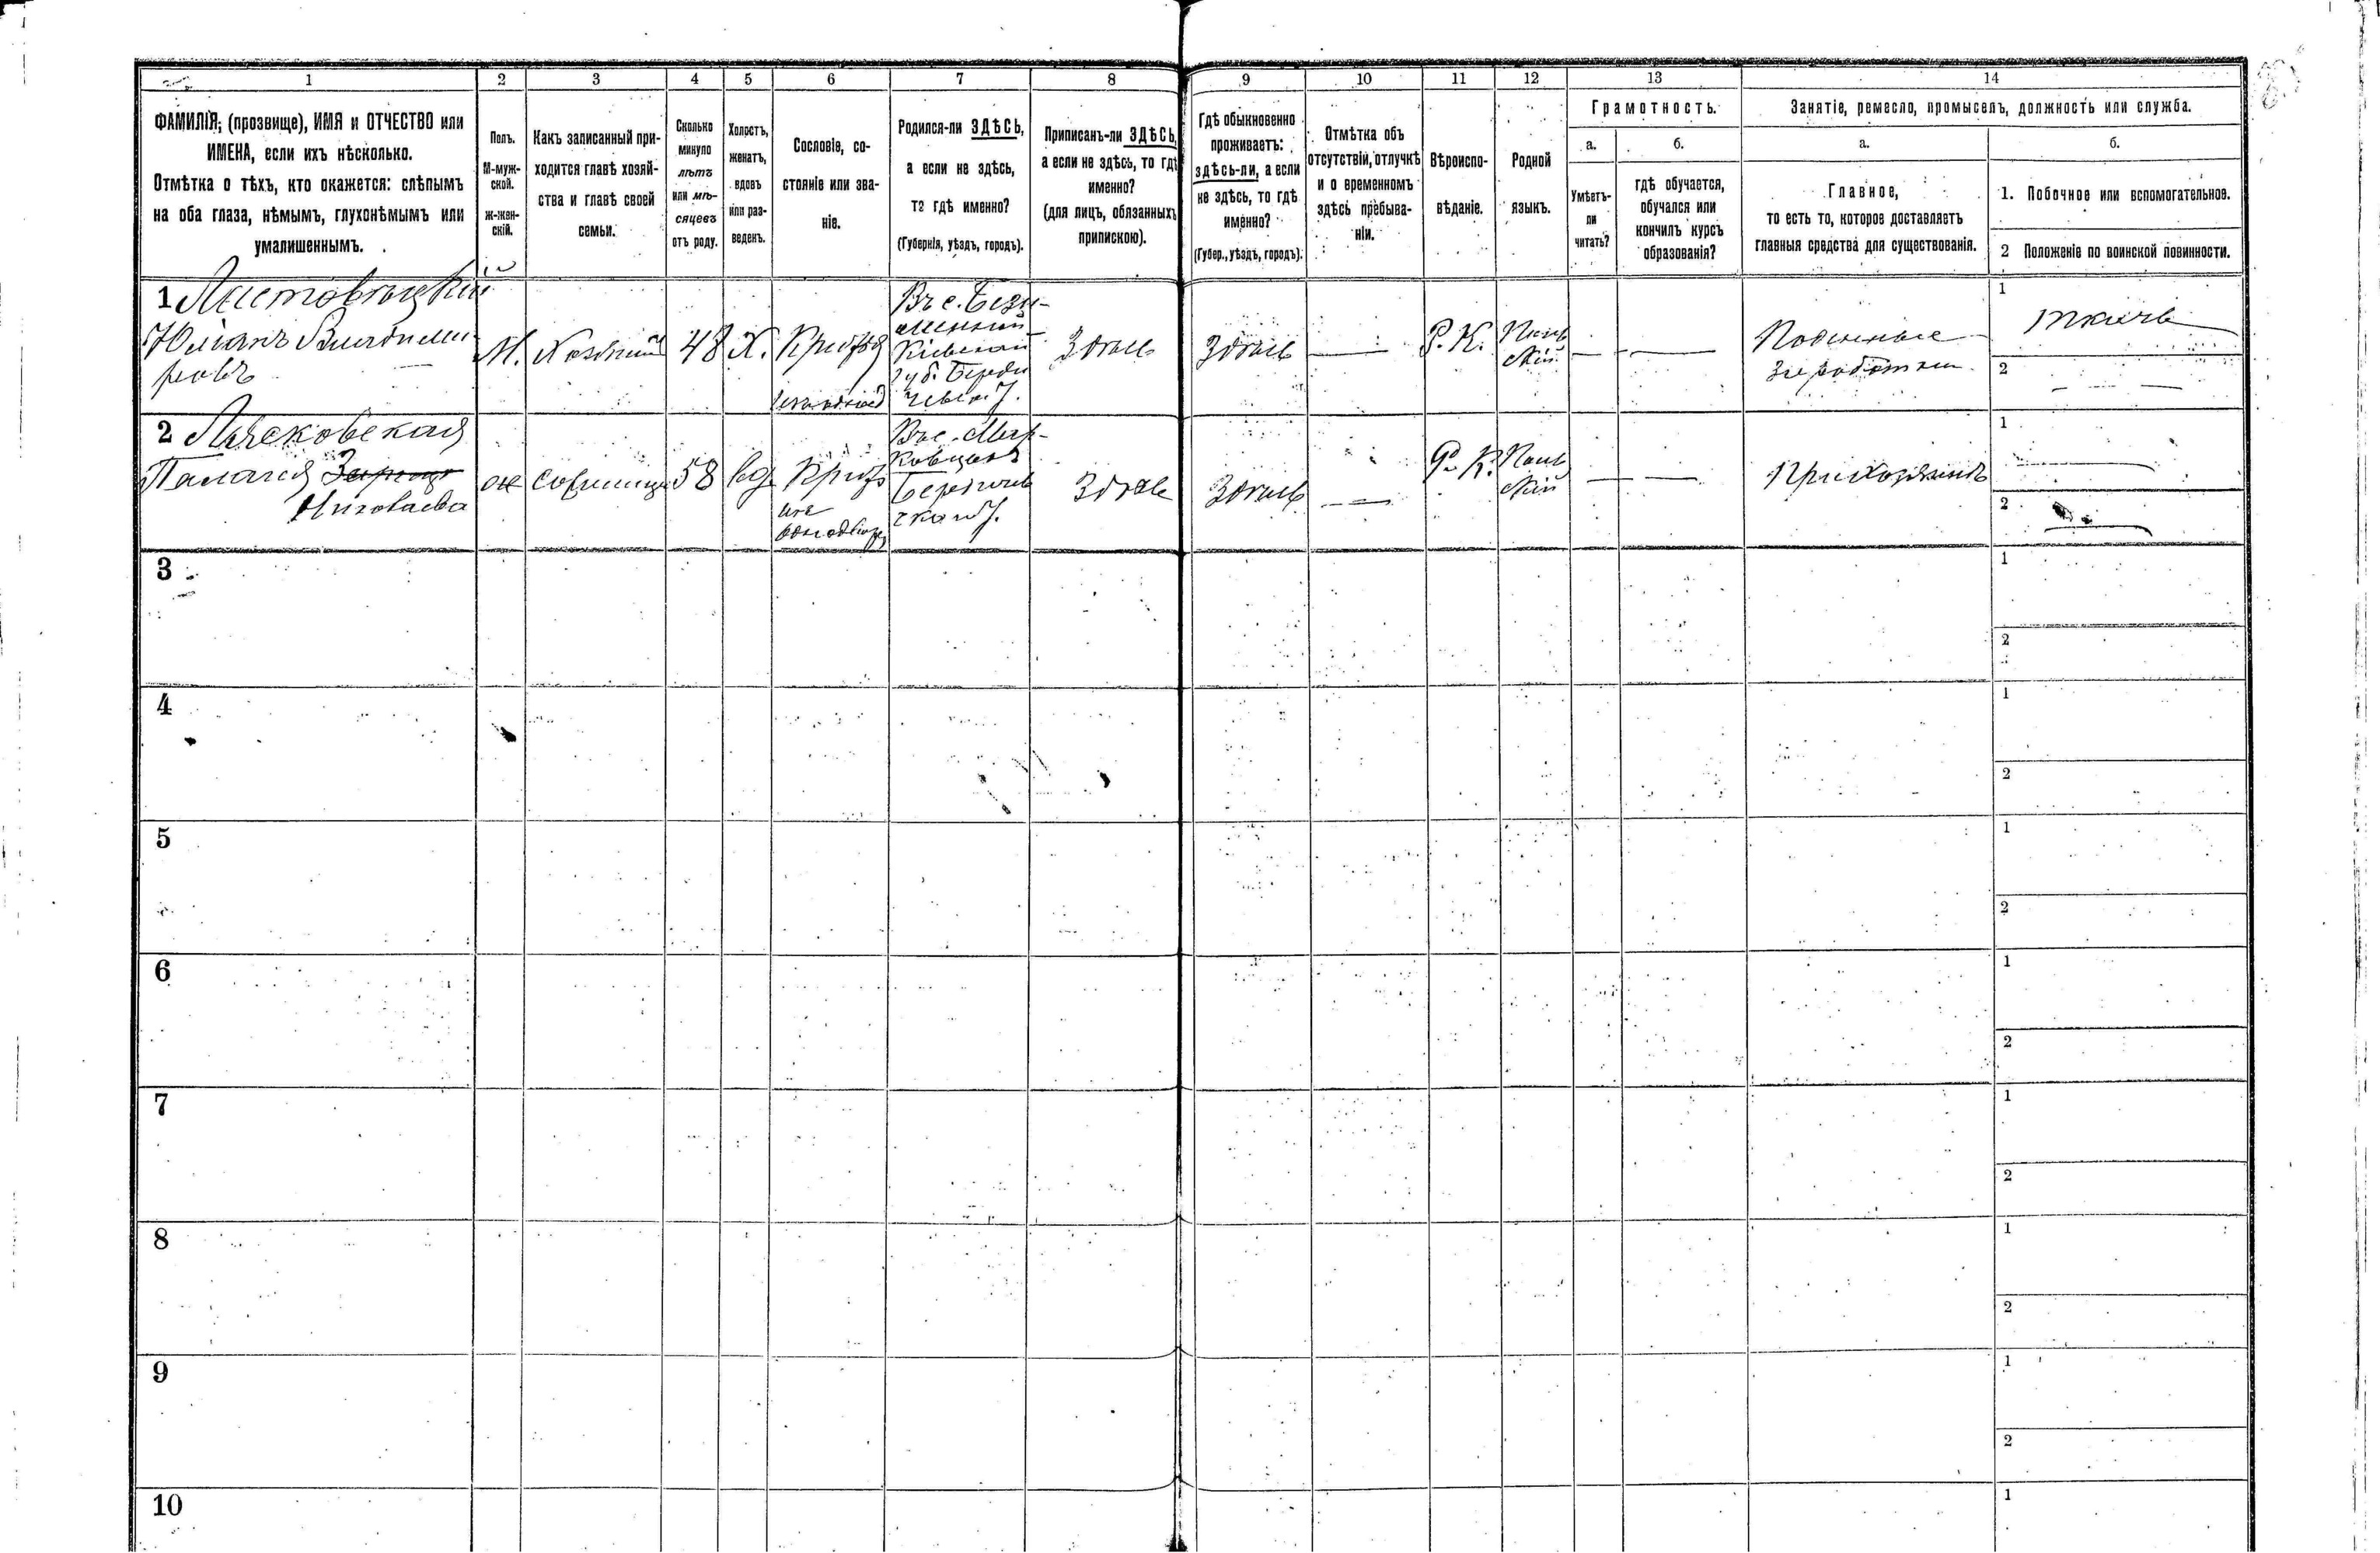 1
2
3
4
5
6
7
8
9
10
11
12
13
14
ФАМИЛІЯ, (прозвище), ИМЯ и ОТЧЕСТВО или
ИМЕНА, если ихъ нѣсколько.
Отмѣтка о тѣхъ, кто окажется: слѣпымъ
на оба глаза, нѣмымъ, глухонѣмымъ или
умалишеннымъ.
Полъ.
М-муж-
ской.
ж-жен-
скій.
Какъ записанный при-
ходится главѣ хозяй-
ства и главѣ своей
семьи.
Сколько
минуло
лѣтъ
или мѣ-
сяцевъ
отъ роду.
Холостъ,
женатъ,
вдовъ
или раз-
веденъ.
Сословіе, со-
стояніе или зва-
ніе.
Родился-ли ЗДѢСЬ,
а если не здѣсь,
то гдѣ именно?
(Губернія, уѣздъ, городъ).
Приписанъ-ли ЗДѢСЬ,
а если не здѣсь, то гдѣ
именно?
(для лицъ, обязанныхъ
припискою).
Гдѣ обыкновенно
проживаетъ:
здѣсь-ли, а если
не здѣсь, то гдѣ
именно?
(Губер., уѣздъ, городъ).
Отмѣтка объ
отсутствіи, отлучкѣ
и о временномъ
здѣсь пребыва-
ніи.
Вѣроиспо-
вѣданіе.
Родной
языкъ.
Грамотность.
а.
Умѣетъ-
ли
читать?
б.
гдѣ обучается,
обучался или
кончилъ курсъ
образованія?
Занятіе, ремесло, промыселъ, должность или служба.
а.
Главное,
то есть то, которое доставляетъ
главныя средства для существованія.
б.
1. Побочное или вспомогательное.
2 Положеніе по воинской повинности.
1
Юліанъ Владими-
ровъ
М.
Хозяинъ
48
Х.
Въ с. Бези-
Кіевской
губ. Берди
чевск. у.
Здѣсь
Здѣсь
Р. К.
Поль
скій
Поденные
заработки
1
ткачъ
2
2
Николаева
ж
58
вд.
Здѣсь
Здѣсь
Р. К.
Поль
скій
1
2
3
1
2
4
1
2
5
1
2
6
1
2
7
1
2
8
1
2
9
1
2
10
1